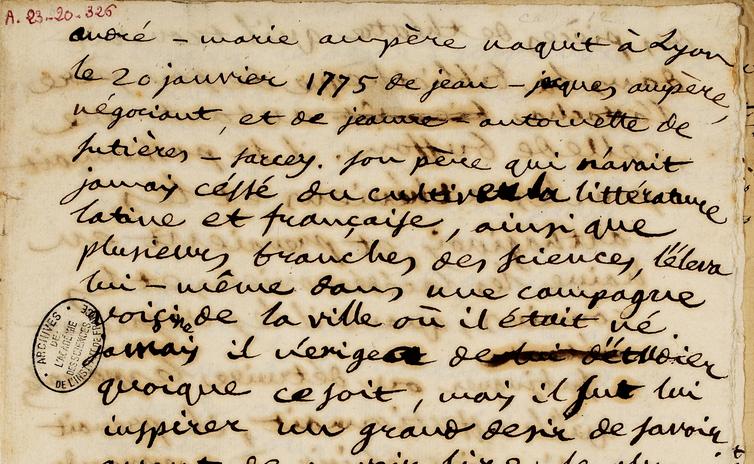 A. 23-20-326
andré-marie ampère naquit à Lyon
le 20 janvier 1775 de jean-jaques ampère,
négociant, et de jeanne-antoinette de
sutières-sarcey. son père qui n'avait
jamais cessé de cultiver la littérature
latine et française, ainsi que
plusieurs branches des sciences, l'éleva
lui-même dans une campagne
voisine de la ville où il était né
jamais il n'exigea de lui d'étudier
quoique ce soit, mais il sut lui
inspirer un grand desir de savoir
avant de
ARCHIVES
DE
L'ACADÉMIE
DES SCIENCES
DE L'INSTITUT DE FRANCE